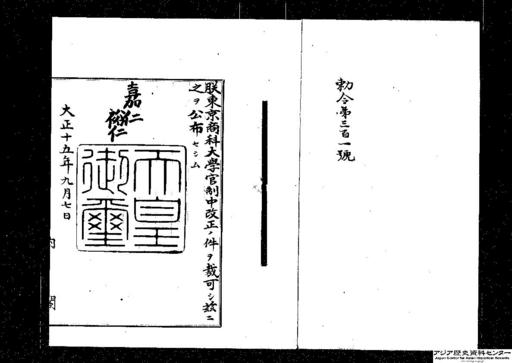 勅令第三百一號
朕東京商科大學官制中改正ノ件ヲ裁可シ茲ニ
之ヲ公布セシム
嘉仁
裕仁
天皇
御璽
大正十五年九月七日
内閣
アジア歴史資料センター
Japan Center for Asian Historical Records